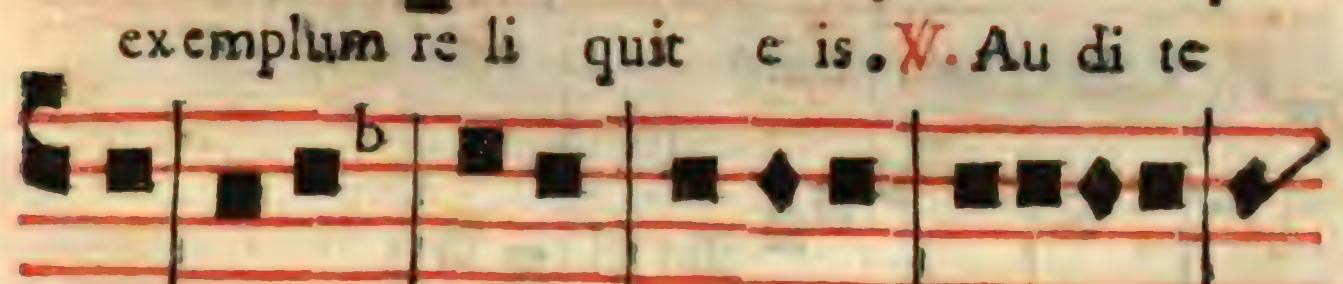 exemplum re li quit e is. V. Au di te